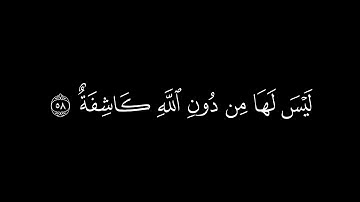 لَيْسَ لَهَا مِن دُونِ ٱللَّهِ كَاشِفَةٌ ۝٥٨